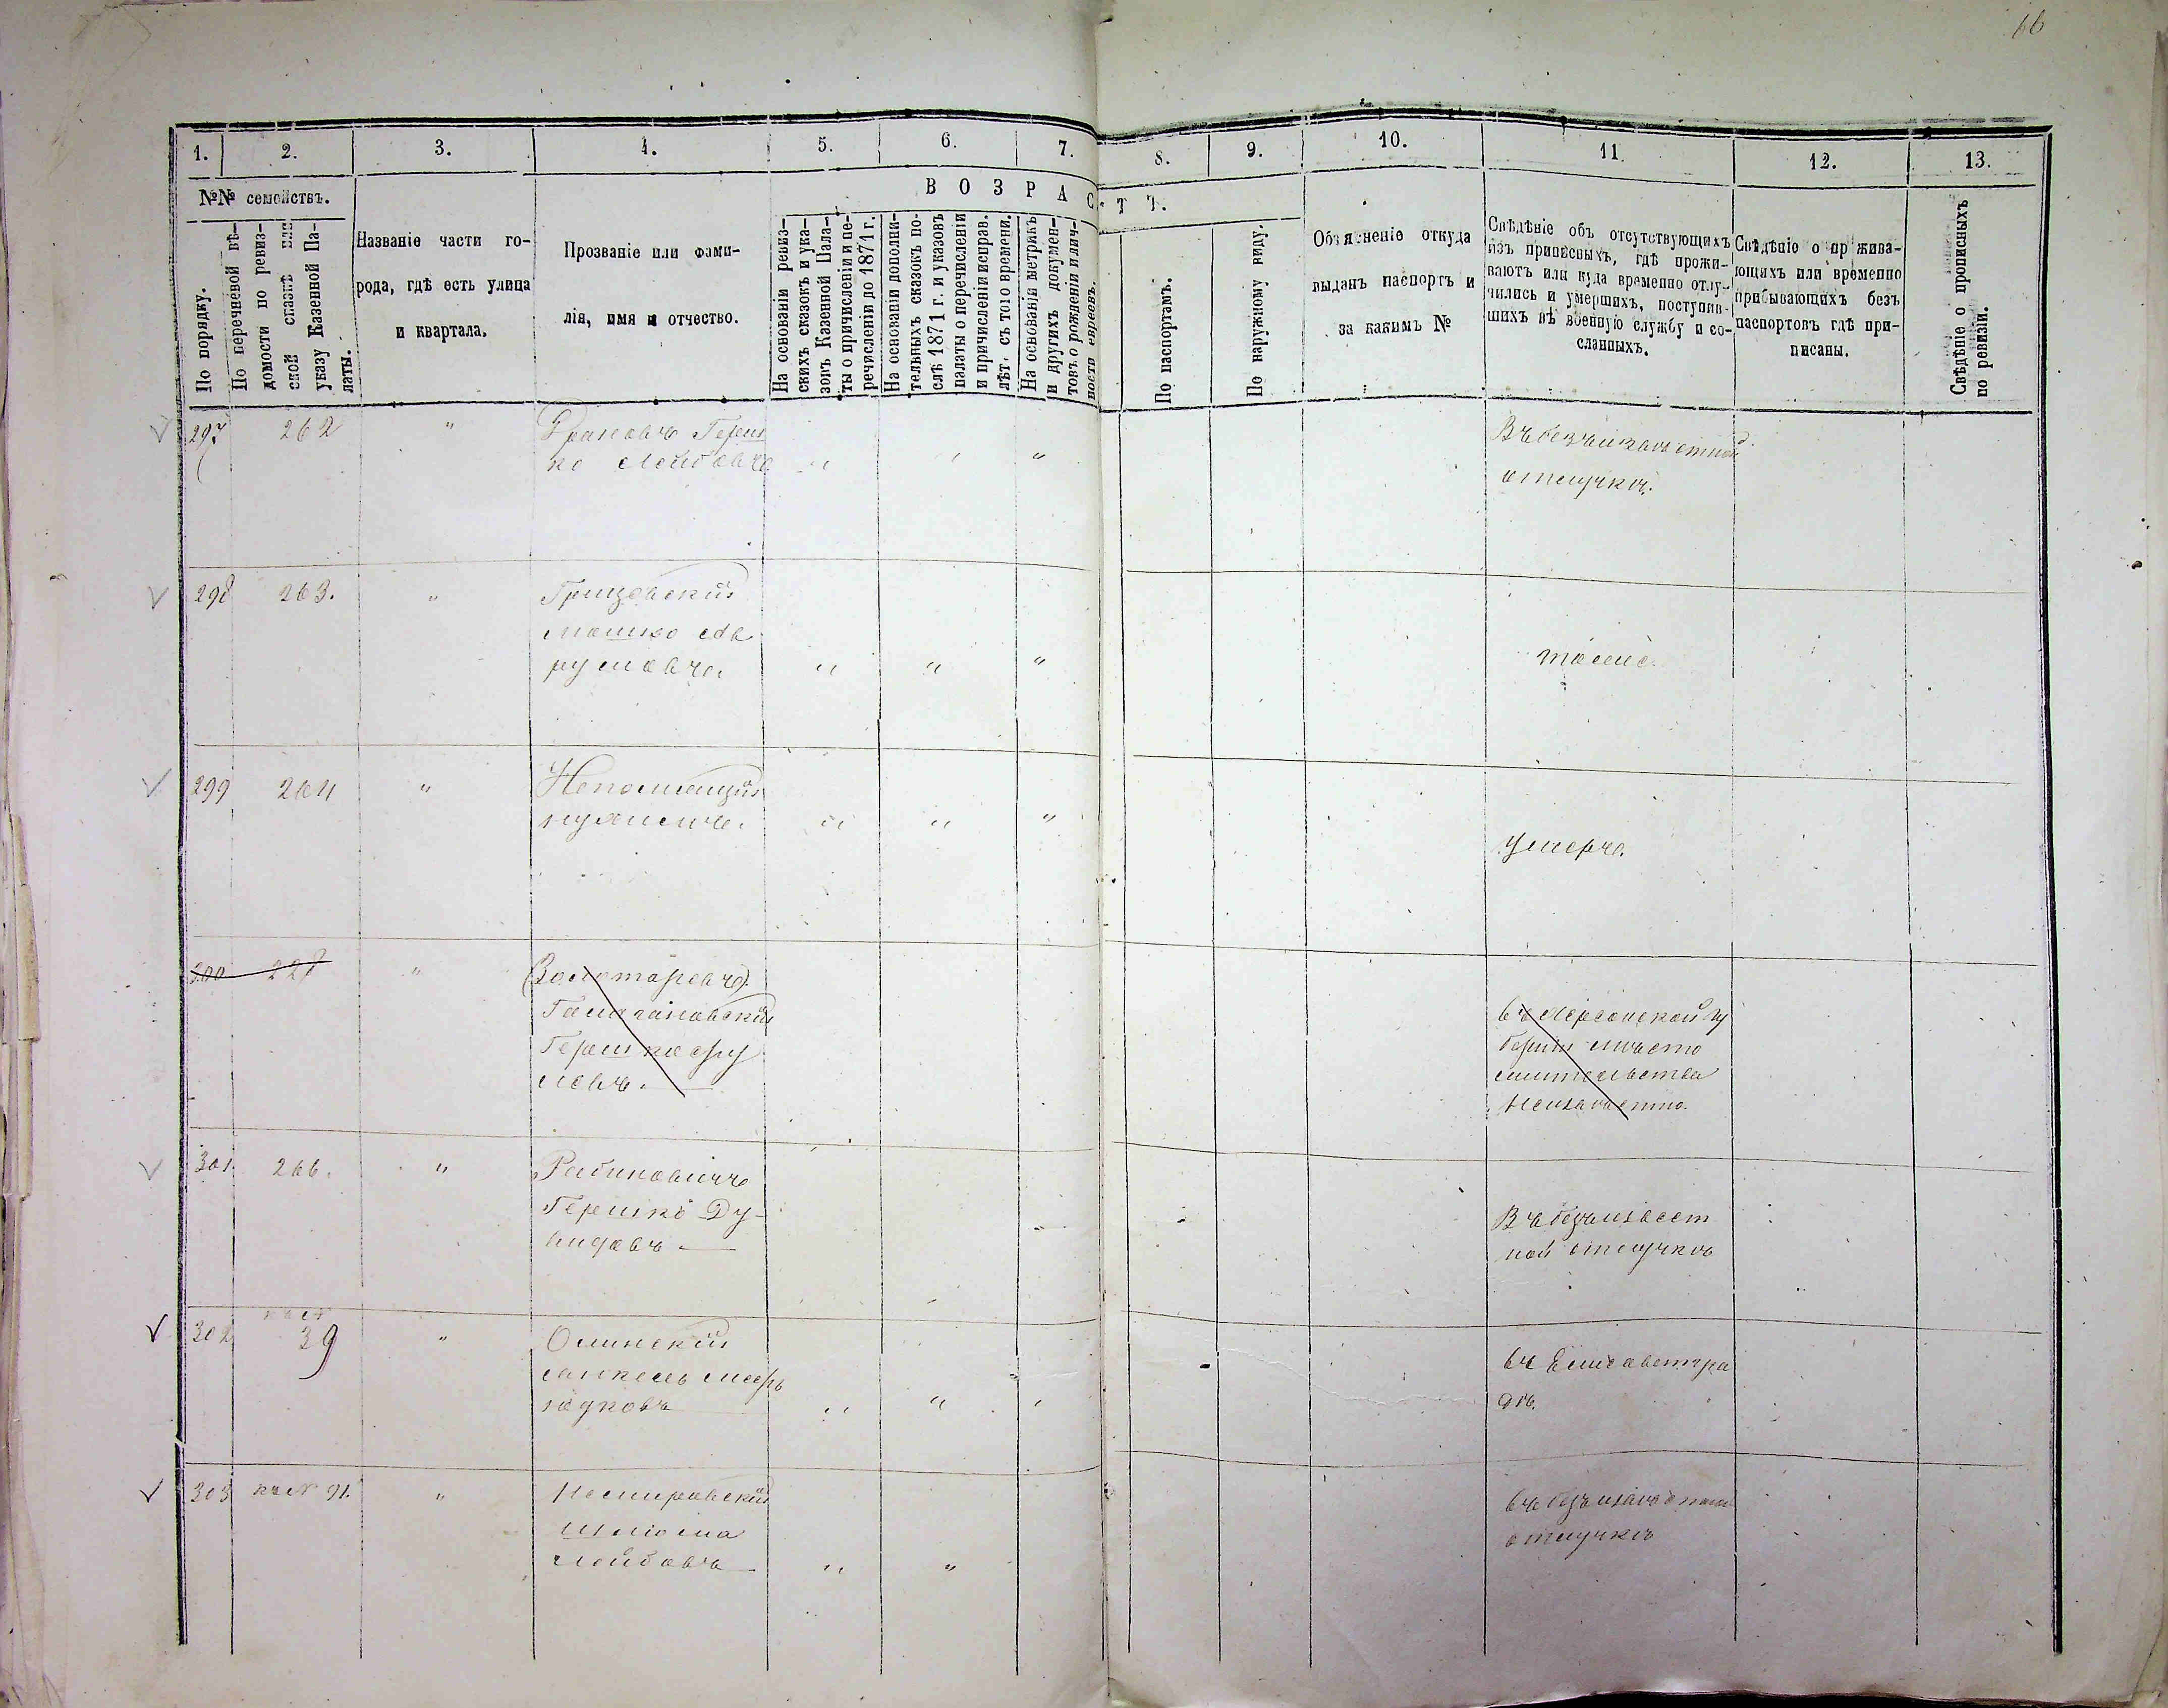 66
1. 2. 3. 4. 5. 6. 7. 8. 9. 10. 11. 12. 13.
№№ семействъ.
В О З Р А С Т Ъ.
По порядку.
По перечневой вѣ-
домости по ревиз-
ской сказкѣ или
указу Казенной Па-
латы.
Названіе части го-
рода, гдѣ есть улица
и квартала.
Прозваніе или фами-
лія, имя и отчество.
На основаніи ревиз-
скихъ сказокъ и ука-
зовъ Казенной Пала-
ты о причисленіи и пе-
речисленіи до 1871 г.
На основаніи дополни-
тельныхъ сказокъ по-
слѣ 1871 г. и указовъ
палаты о перечисленіи
и причисленіи исправ.
лѣт. съ того времени.
На основаніи метрикъ
и другихъ докумен-
товъ о рожденіи и лич-
ности евреевъ.
По паспортамъ.
По наружному виду.
Объясненіе откуда
выданъ паспортъ и
за какимъ №
Свѣдѣніе объ отсутствующихъ
изъ приписныхъ, гдѣ прожи-
ваютъ или куда временно отлу-
чились и умершихъ, поступив-
шихъ въ военную службу и со-
сланныхъ.
Свѣдѣніе о прожива-
ющихъ или временно
прибывающихъ безъ
паспортовъ гдѣ при-
писаны.
Свѣдѣніе о прописныхъ
по ревизіи.
297 262 " Грановъ Герш
ко Лейбовъ " " "
Въ безъизвѣстной
отлучкѣ.
298 263. " Грицевскій
Мошко
румовъ. " " "
тоже
299 264 " Непомнящій
" " "
умеръ.
300 228 " (Золотаревъ)
Гершко Сру
левъ.
въ Херсонской гу
берніи мѣсто
жительства
Неизвѣстно.
301. 266. " Рабиновичъ
Гершко Ду-
видовъ —
Въ безъизвѣст
ной отлучкѣ
302 къ № 39 " Олинскій
" " "
въ Елисаветгра
дѣ.
303 къ № 91. " Немировскій
Шлиома
Лейбовъ — " "
въ безъизвѣстной
отлучкѣ